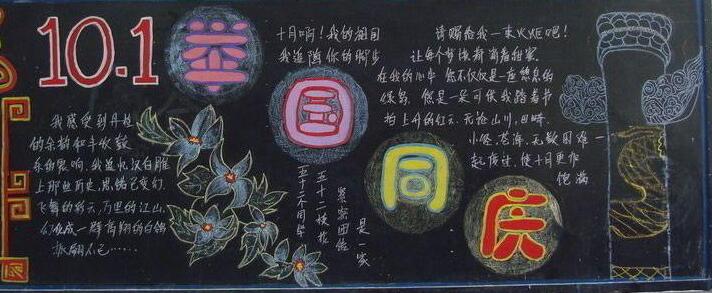 10.1
举国同庆
我感受到丹桂
的余韵和丰收鼓
乐的震响，我追忆汉白雕
上那些历史，思绪已变幻
飞舞的彩云，万里的江山
幻化成一群高翔的白鸽
翩不已……
十月啊！我的祖国
我追随你的脚步
五十
五十
紧密团结
是一家
请赐给我一束火炬吧！
让每个梦境都淌着甜蜜
在我的心中 您不仅仅是一座息的
绿岛，您是一朵可供我踏着节
拍上升的红云，无论山川，田畴
小径，苍海，无数困难一
起度过，使十月更
饱满